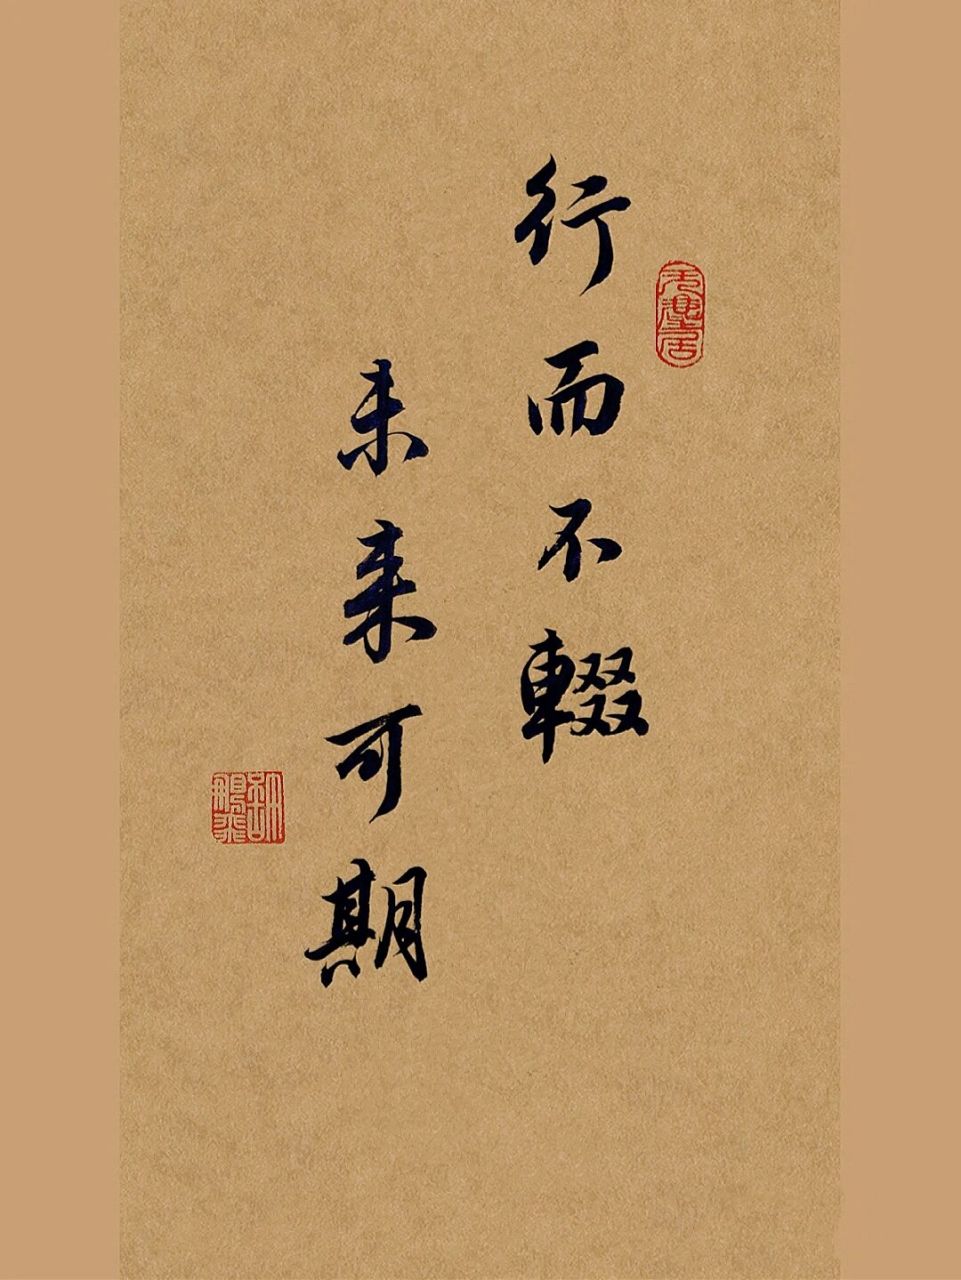 行而不輟
未来可期